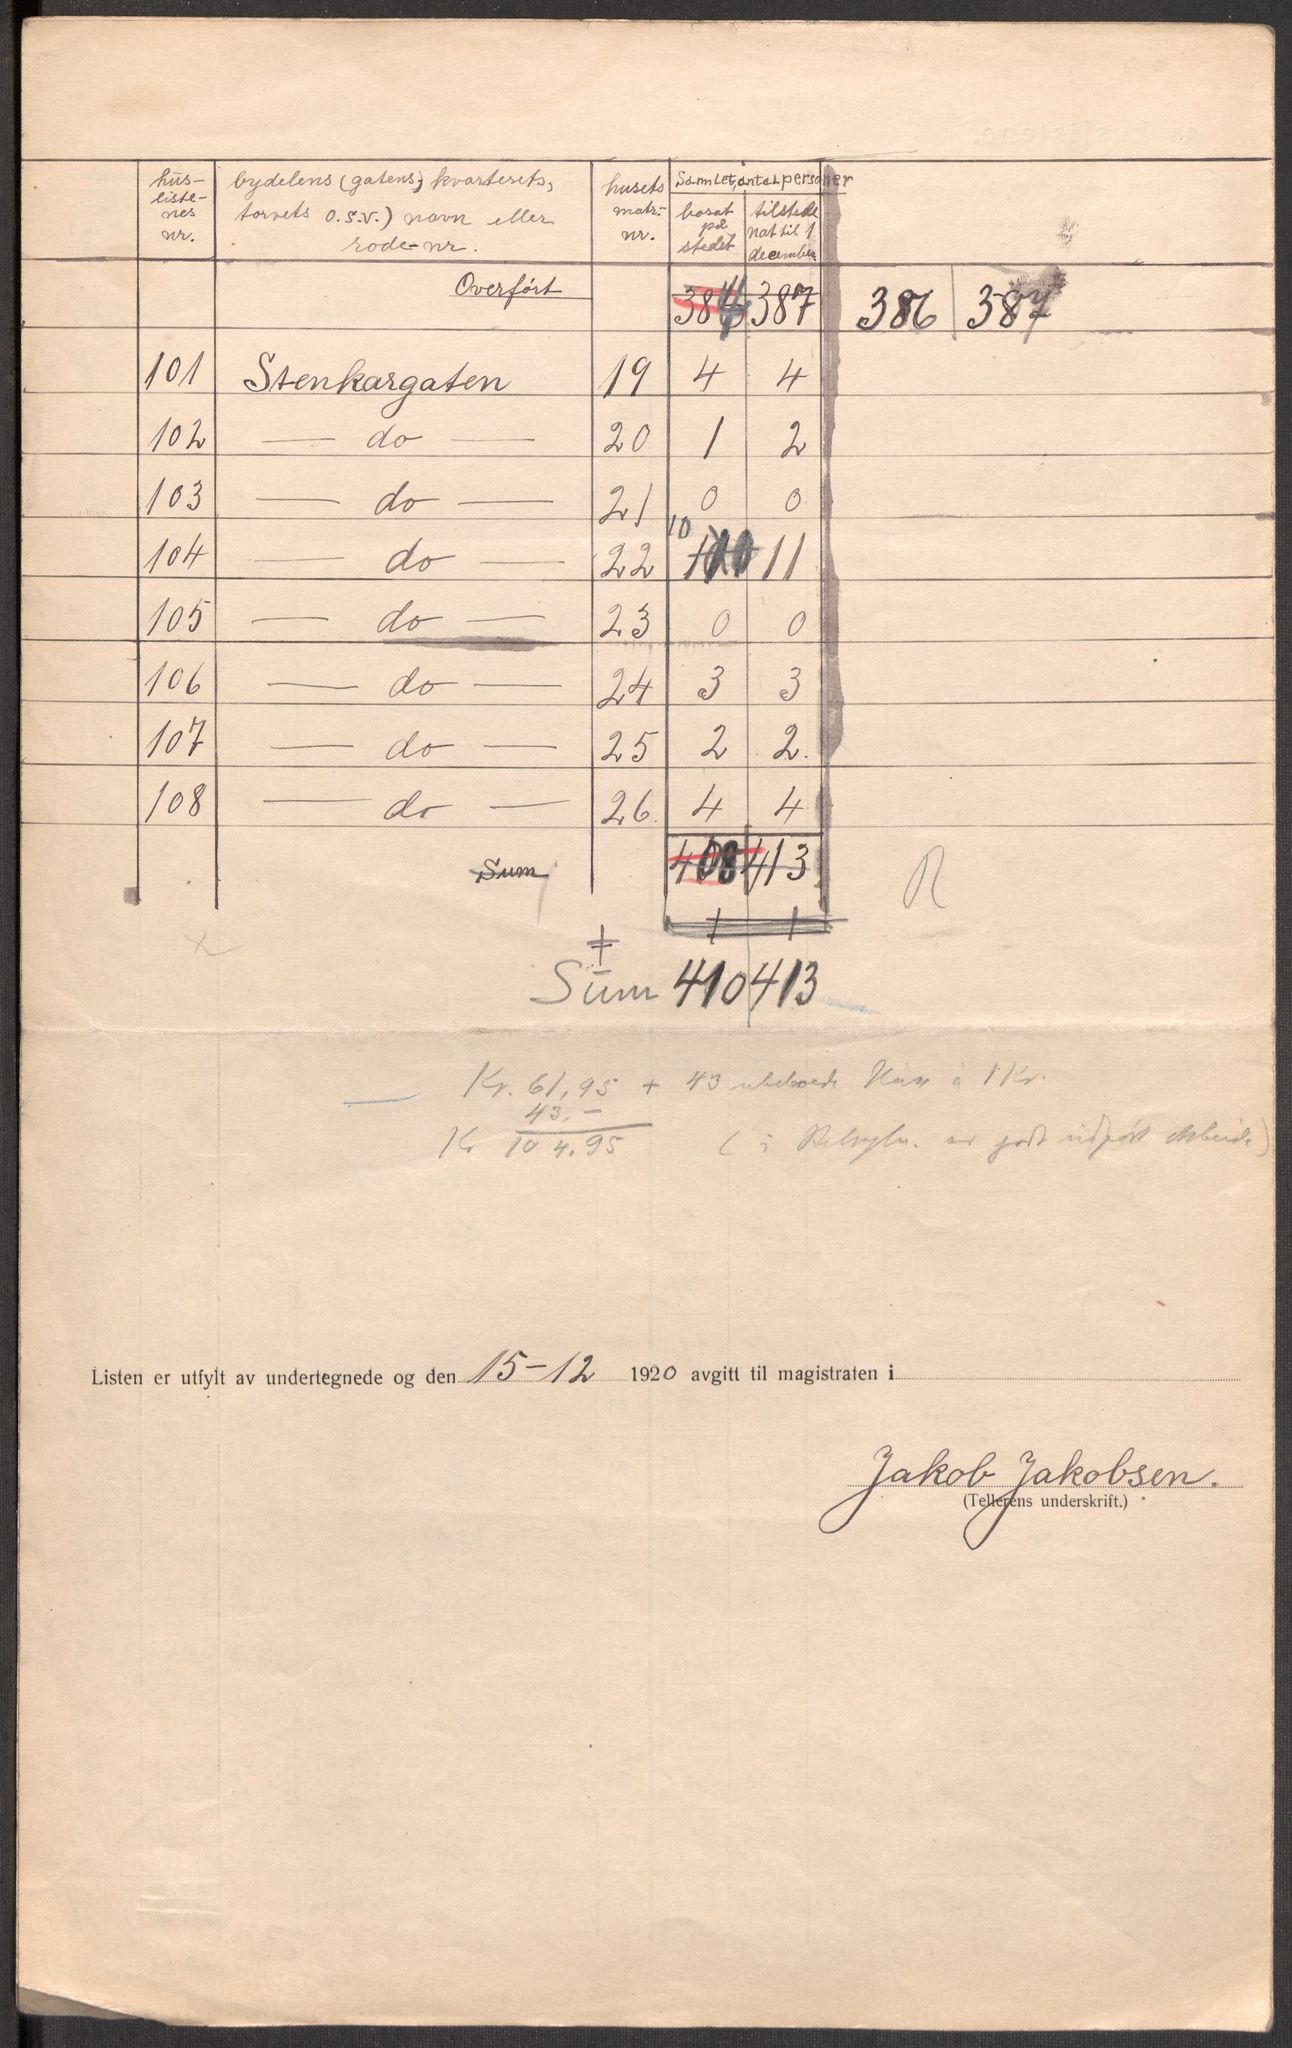 hus- bydelens (gatens,) kvarterets, husets Samlet antal personer
liste- torvets o.s.v.) navn eller matr.- bosat tilstede
nes rode-nr. nr. på nat til 1
nr. stedet december
Overført 387 386 387
101 Stenkargaten 19 4 4
102 — do — 20 1 2
103 — do — 21 0 0
104 — do — 22 10 11
105 — do — 23 0 0
106 — do — 24 3 3
107 — do — 25 2 2.
108 — do — 26. 4 4
Sum 408 413
R
Sum 410 413
Kr. 61,95 + 43 ubeboede Hus à 1 Kr.
43.—
Kr 104.95 ( er godt udført Arbeide)
Listen er utfylt av undertegnede og den 15-12 1920 avgitt til magistraten i
Jakob Jakobsen.
(Tellerens underskrift.)